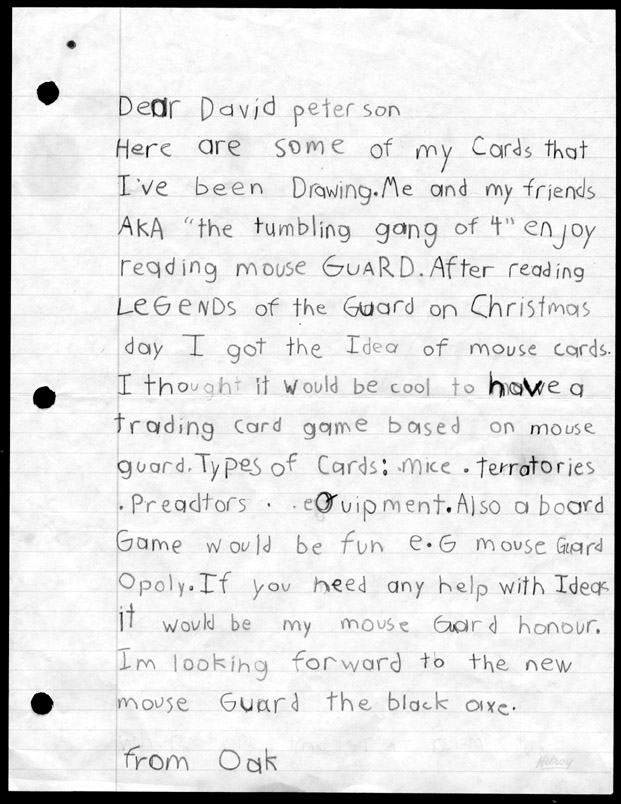 Dear David peterson
Here are some of my Cards that
I've been Drawing. Me and my friends
AKA "the tumbling gang of 4" enjoy
reading mouse GUARD. After reading
LEGENDS of the Guard on Christmas
day I got the Idea of mouse cards.
I thought it would be cool to have a
trading card game based on mouse
guard. Types of Cards: .mice . terratories
. Preadtors . . eQuipment. Also a board
Game would be fun e.G mouse Guard
Opoly. If you need any help with Ideas
it would be my mouse Guard honour.
Im looking forward to the new
mouse Guard the black axe.
from Oak